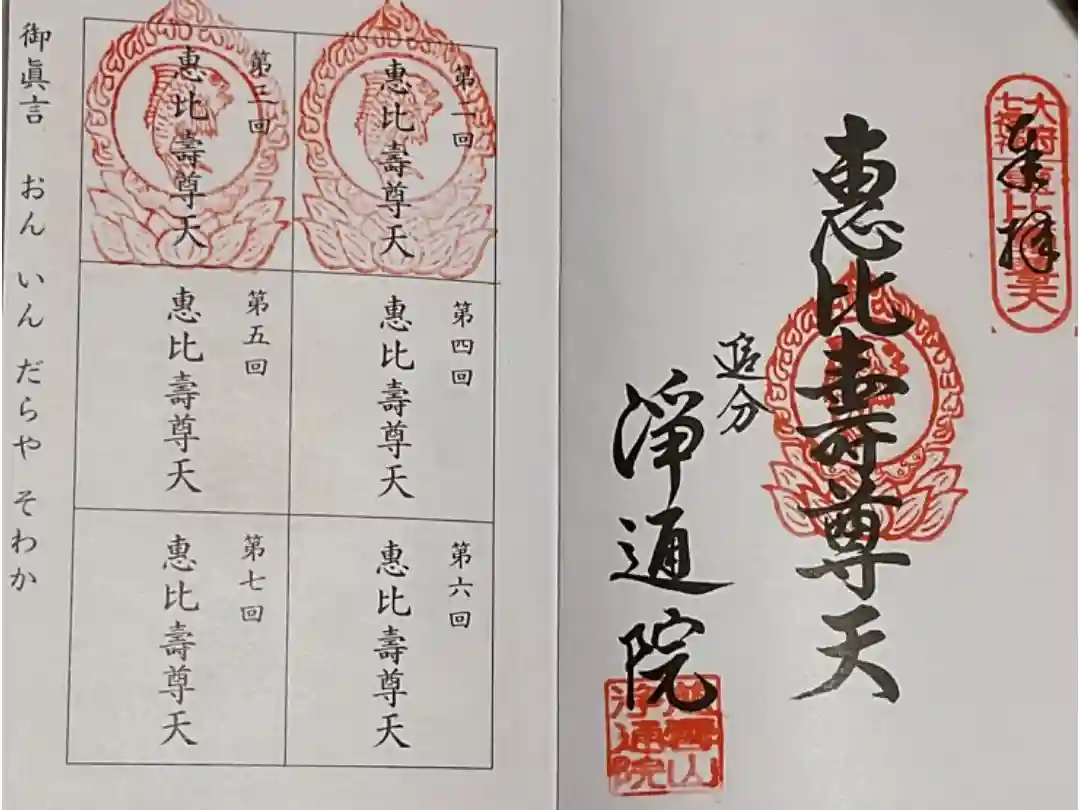 奉拝
大府
七福神
惠比壽尊天
惠比壽尊天
追分
淨通院
淨通院
第二回
惠比壽尊天
第三回
惠比壽尊天
第四回
惠比壽尊天
第五回
惠比壽尊天
第六回
惠比壽尊天
第七回
惠比壽尊天
御眞言 おん いんだらや そわか